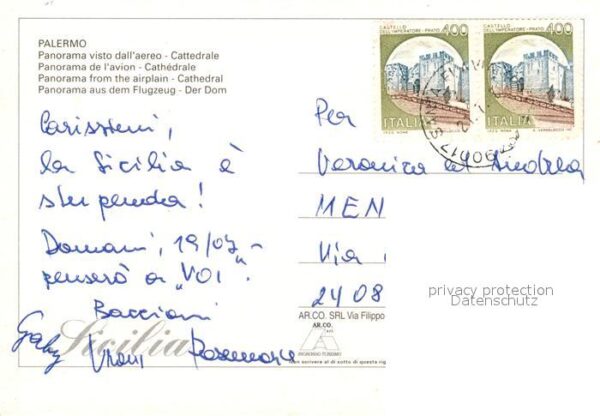 PALERMO
Panorama visto dall'aereo - Cattedrale
Panorama de l'avion - Cathédrale
Panorama from the airplain - Cathedral
Panorama aus dem Flugzeug - Der Dom
Carissimi,
la Sicilia è
stupenda!
Domani, 19/07,
penserò a "VOI".
Baccioni
Gaby Vroni Rosemarie
Sicilia
CASTELLO
DELL'IMPERATORE - PRATO 400
ITALIA
CASTELLO
DELL'IMPERATORE - PRATO 400
ITALIA
90017
Per
Veronica ed Andrea
MEN
Via
2408
privacy protection
Datenschutz
AR.CO. SRL Via Filippo
AR.CO.